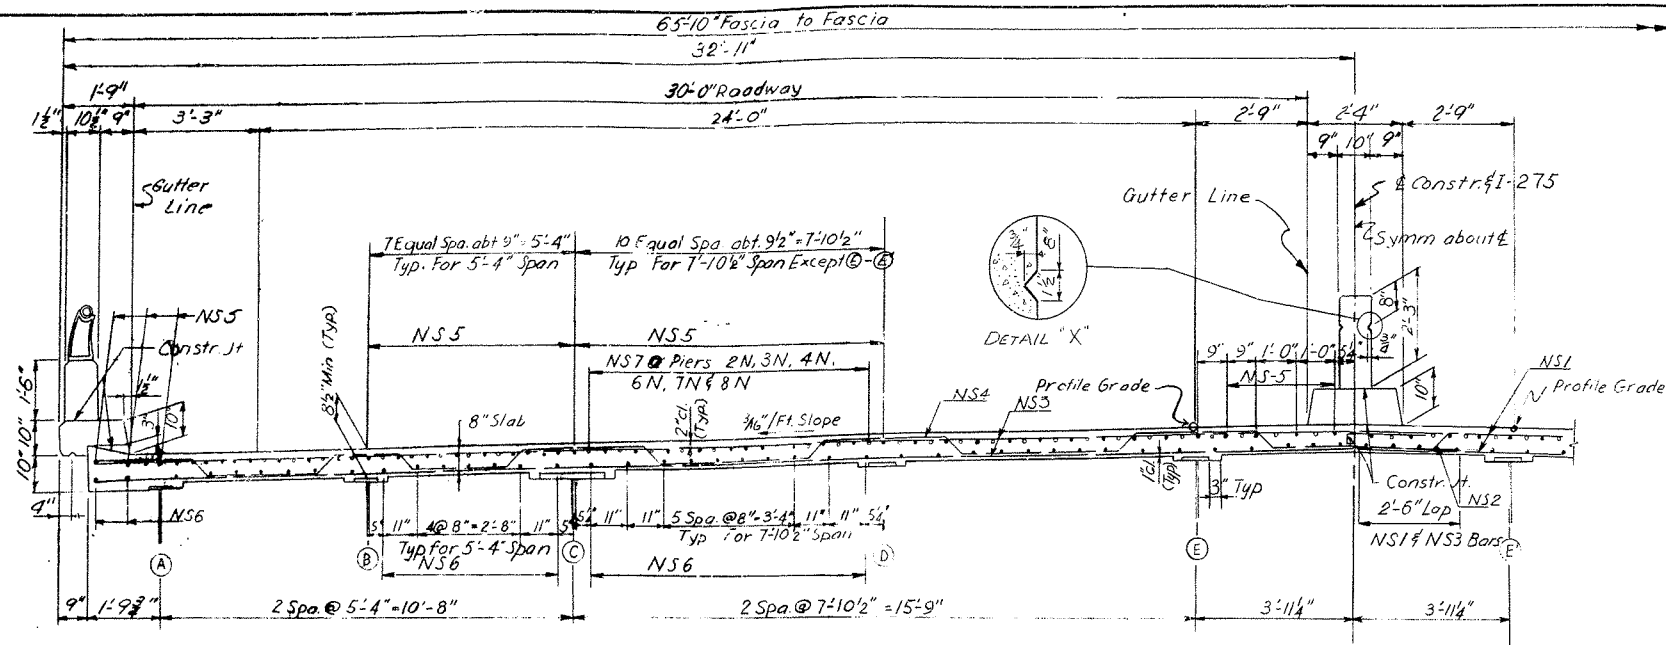 65'-10" Fascia to Fascia
32'-11"
1'-9"
30'-0" Roadway
1½" 10½" 9" 3'-3"
24'-0"
2'-9" 2'-4" 2'-9"
9" 10" 9"
Gutter
Line
Gutter Line
℄ Constr. & I-275
Symm about ℄
7 Equal Spa. abt 9" = 5'-4"
Typ. For 5'-4" Span
10 Equal Spa abt. 9½" = 7'-10½"
Typ For 7'-10½" Span Except Ⓔ-Ⓔ
¾" 8"
1½"
DETAIL "X"
8"
2'-3"
10"
NS5
Constr. Jt
8½" Min (Typ)
NS5
NS5
NS7 @ Piers 2N, 3N, 4N,
6N, 7N & 8N
9" 9" 1'-0" 1'-0"
NS-5
NS1
Profile Grade
Profile Grade
1'-6"
10"
10"
1½"
3"
10"
8" Slab
2" cl.
(Typ)
3/16"/Ft. Slope
NS4
NS3
1" cl.
(Typ)
3" Typ
Constr. Jt.
NS2
2'-6" Lap
NS1 & NS3 Bars
4"
NS6
5" 11" 4@8"=2'-8" 11" 5"
Typ for 5'-4" Span
NS6
5¼" 11" 11" 5 Spa. @8"=3'-4" 11" 11" 5¼"
Typ For 7'-10½" Span
NS6
A B C D E E
9" 1'-9¾"
2 Spa. @ 5'-4" = 10'-8"
2 Spa. @ 7'-10½" = 15'-9"
3'-11¼"
3'-11¼"